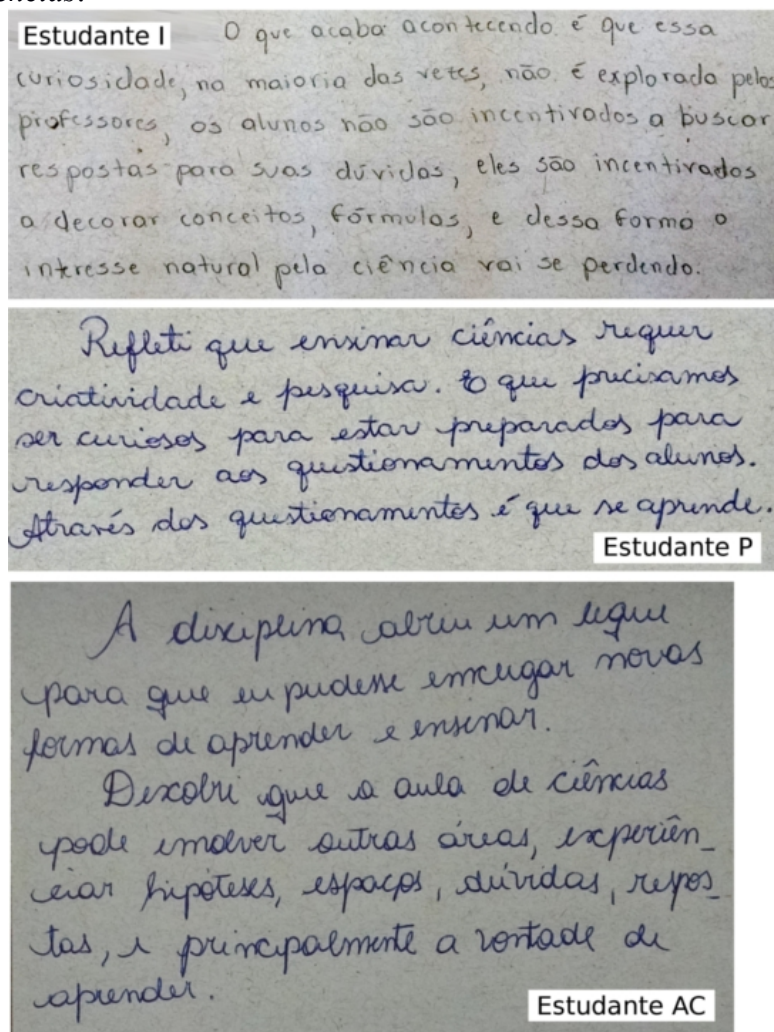 ências.
Estudante I
O que acaba acontecendo é que essa
curiosidade, na maioria das vezes, não é explorada pelos
professores, os alunos não são incentivados a buscar
respostas para suas dúvidas, eles são incentivados
a decorar conceitos, fórmulas, e dessa forma o
interesse natural pela ciência vai se perdendo.
Refleti que ensinar ciências requer
criatividade e pesquisa. E que precisamos
ser curiosos para estar preparados para
responder aos questionamentos dos alunos.
Através dos questionamentos é que se aprende.
Estudante P
A disciplina abriu um leque
para que eu pudesse enxugar novas
formas de aprender e ensinar.
Descobri que a aula de ciências
pode envolver outras áreas, experiên_
ciar hipóteses, espaços, dúvidas, respos_
tas, e principalmente a vontade de
aprender.
Estudante AC